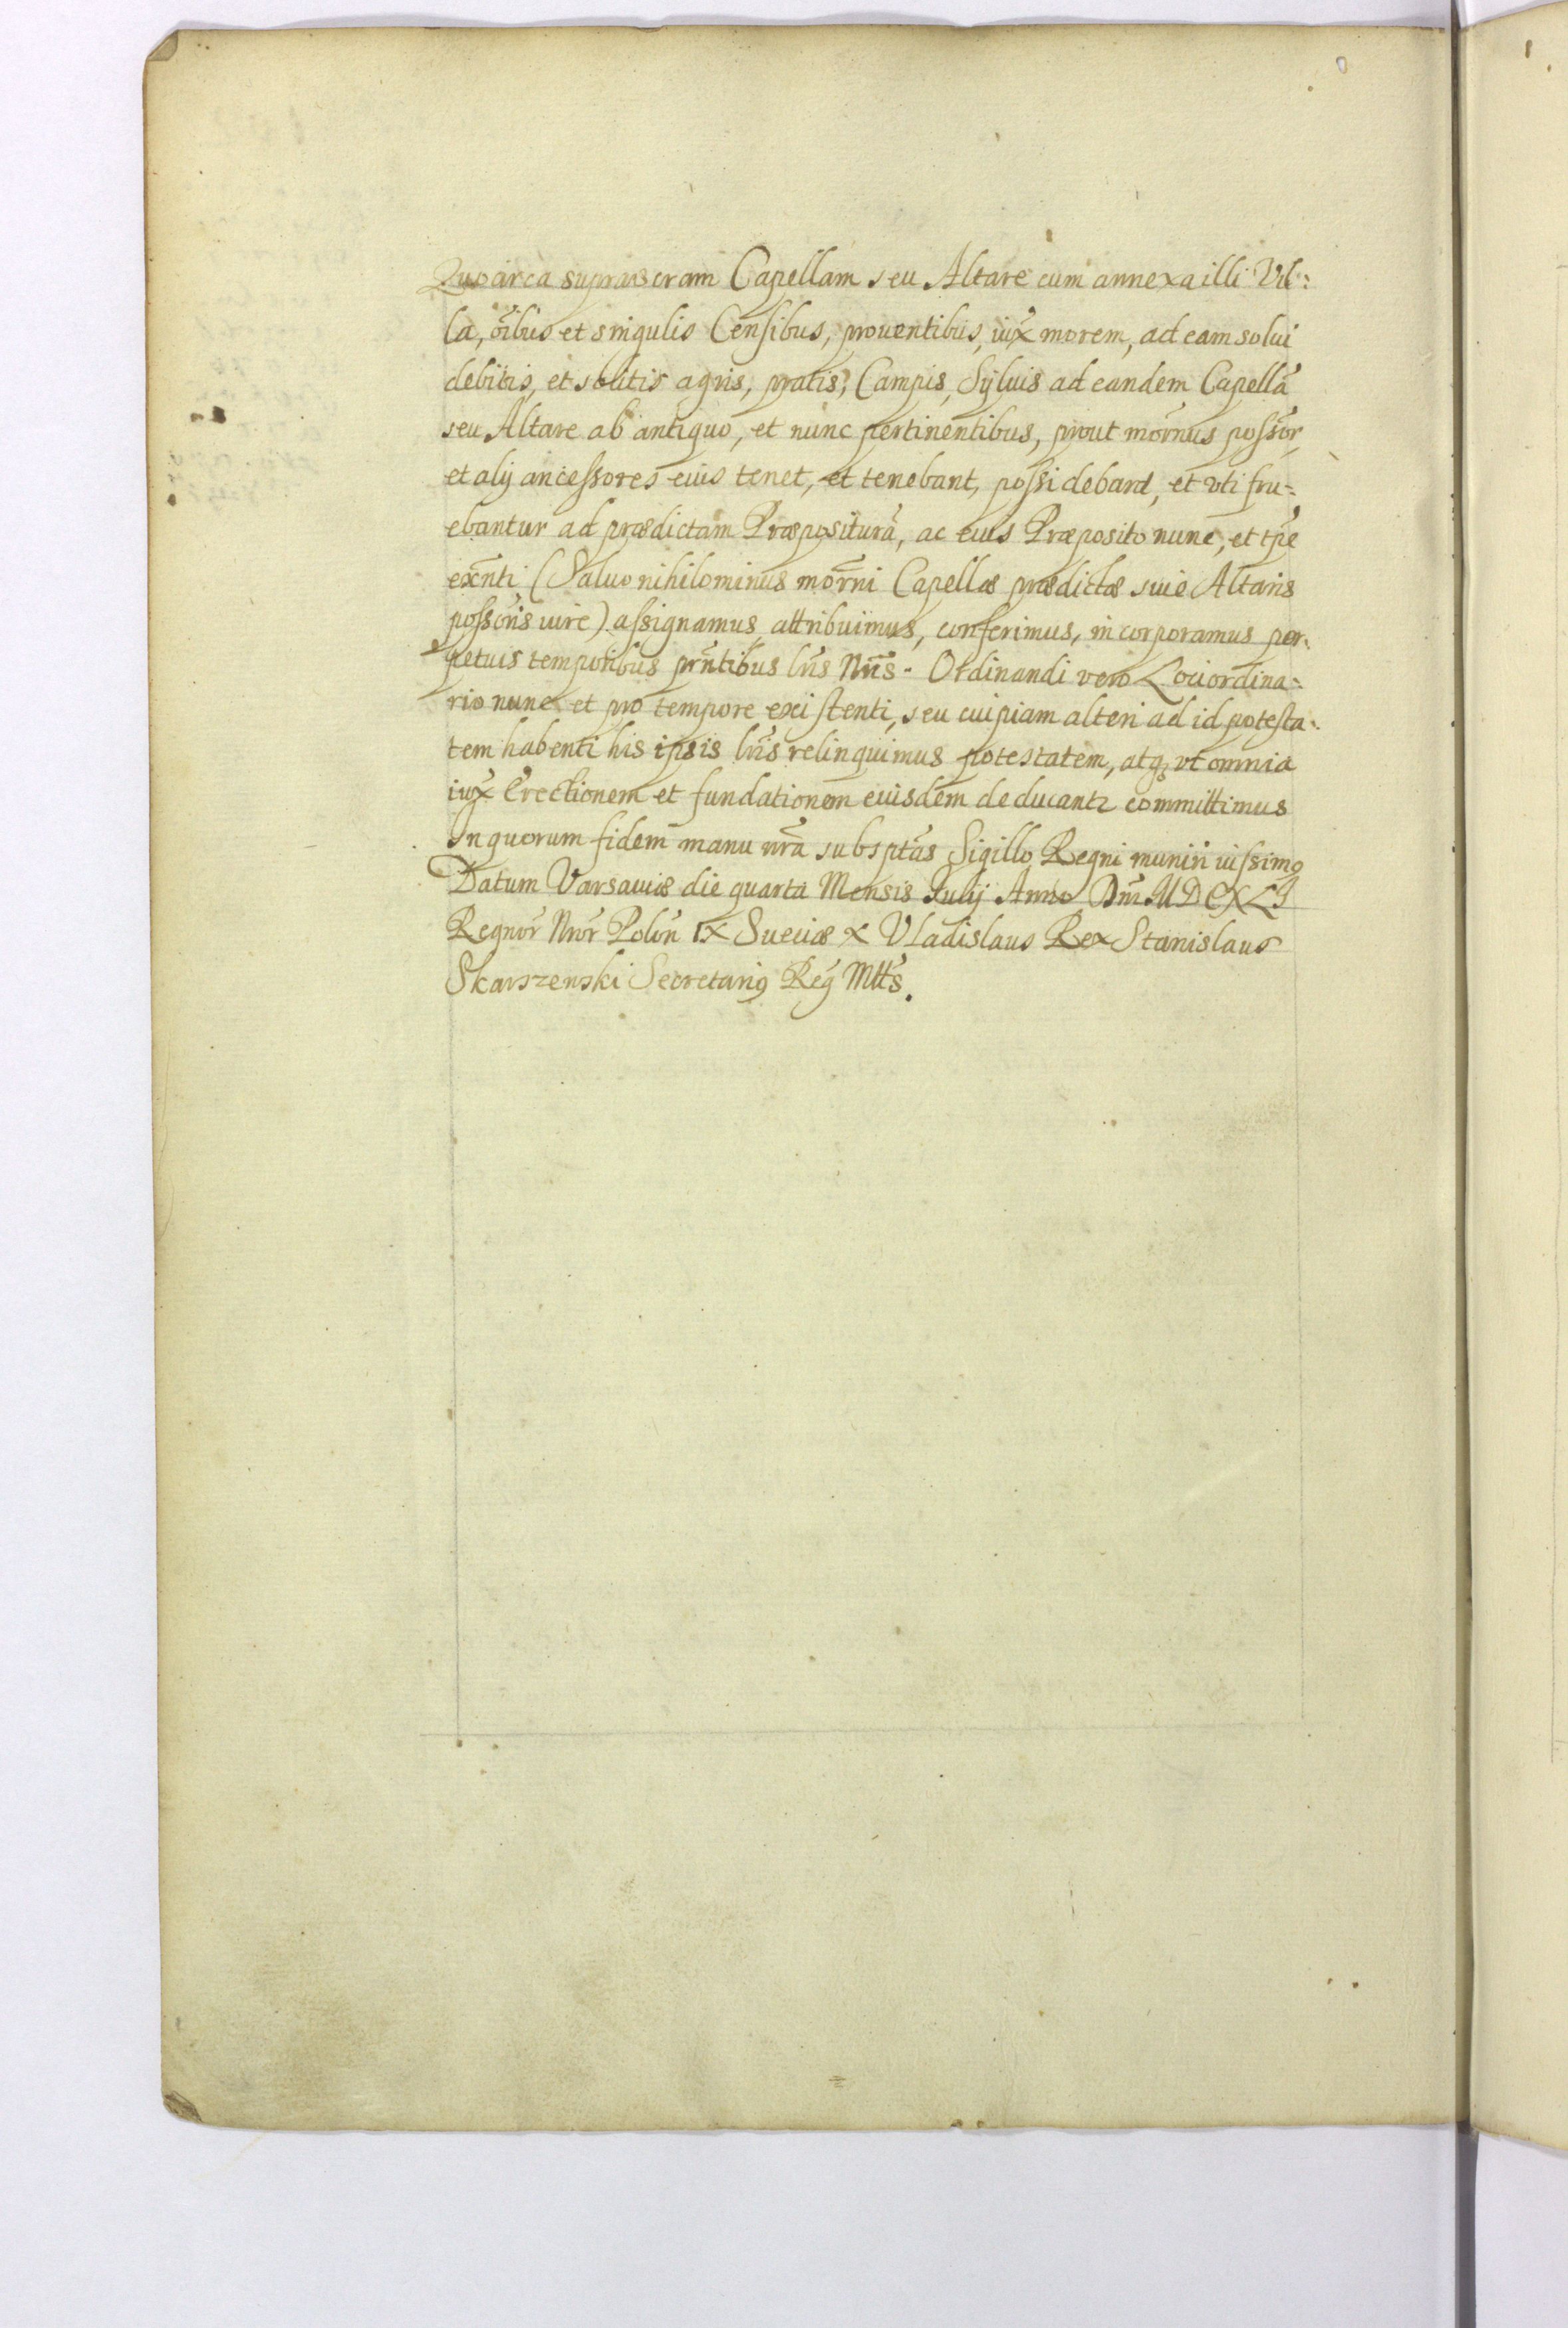 Quocirca suprascram Capellam seu Altare cum annexa illi Vil:
la, oĩbus et singulis Censibus, prouentibus, iux̃ morem, ad eam solui
debitis, et solitis agris, pratis, Campis, Syluis ad eandem Capellã
seu Altare ab antiquo, et nunc pertinentibus, prout mõrnus possõr,
et alij ancessores eius tenet, et tenebant, possidebant, et vti fru-
ebantur ad prædictam Præpositurã, ac eius Præposito nunc, et tp̃e
exñti (Saluo nihilominus mor̃ni Capellæ prædictæ siue Altaris
possõris iure) assignamus, attribuimus, conferimus, incorporamus per:
petuis temporibus prñtibus lr̃is Nr̃is. Ordinandi vero Loci ordina:
rio nunc et pro tempore existenti, seu cuipiam alteri ad id potesta:
tem habenti his ipsis lr̃is relinquimus potestatem, atqꝫ vt omnia
iux̃ Erectionem et fundationem eiusdem deducantr committimus
In quorum fidem manu nr̃a subsptãs Sigillo Regni muniri iussimꝰ
Datum Varsauiæ die quarta Mensis Julij Anno Dñi MDCXLI
Regnor̃ Nror̃ Polon̄ IX Sueciæ X Vladislaus Rex Stanislaus
Skarszewski Secretariꝰ Reg̃ Mtt̃s.